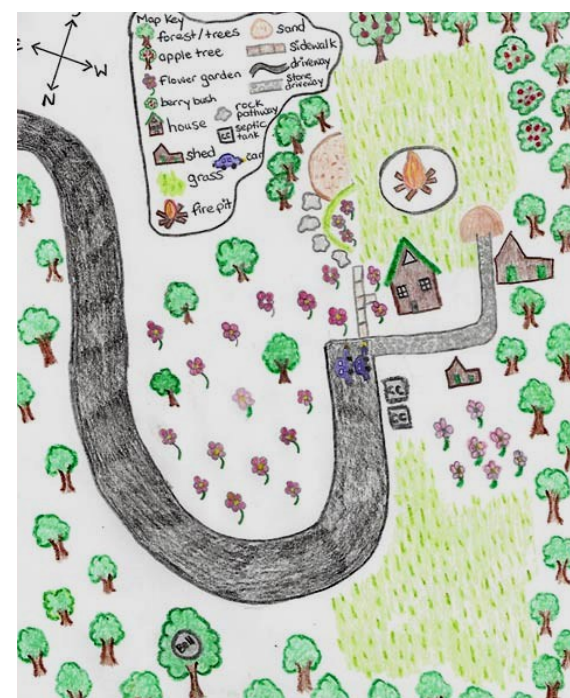 S
E
W
N
Map Key
forest/trees
apple tree
flower garden
berry bush
house
shed
grass
fire pit
sand
sidewalk
driveway
stone
driveway
rock
pathway
septic
tank
car
Ball